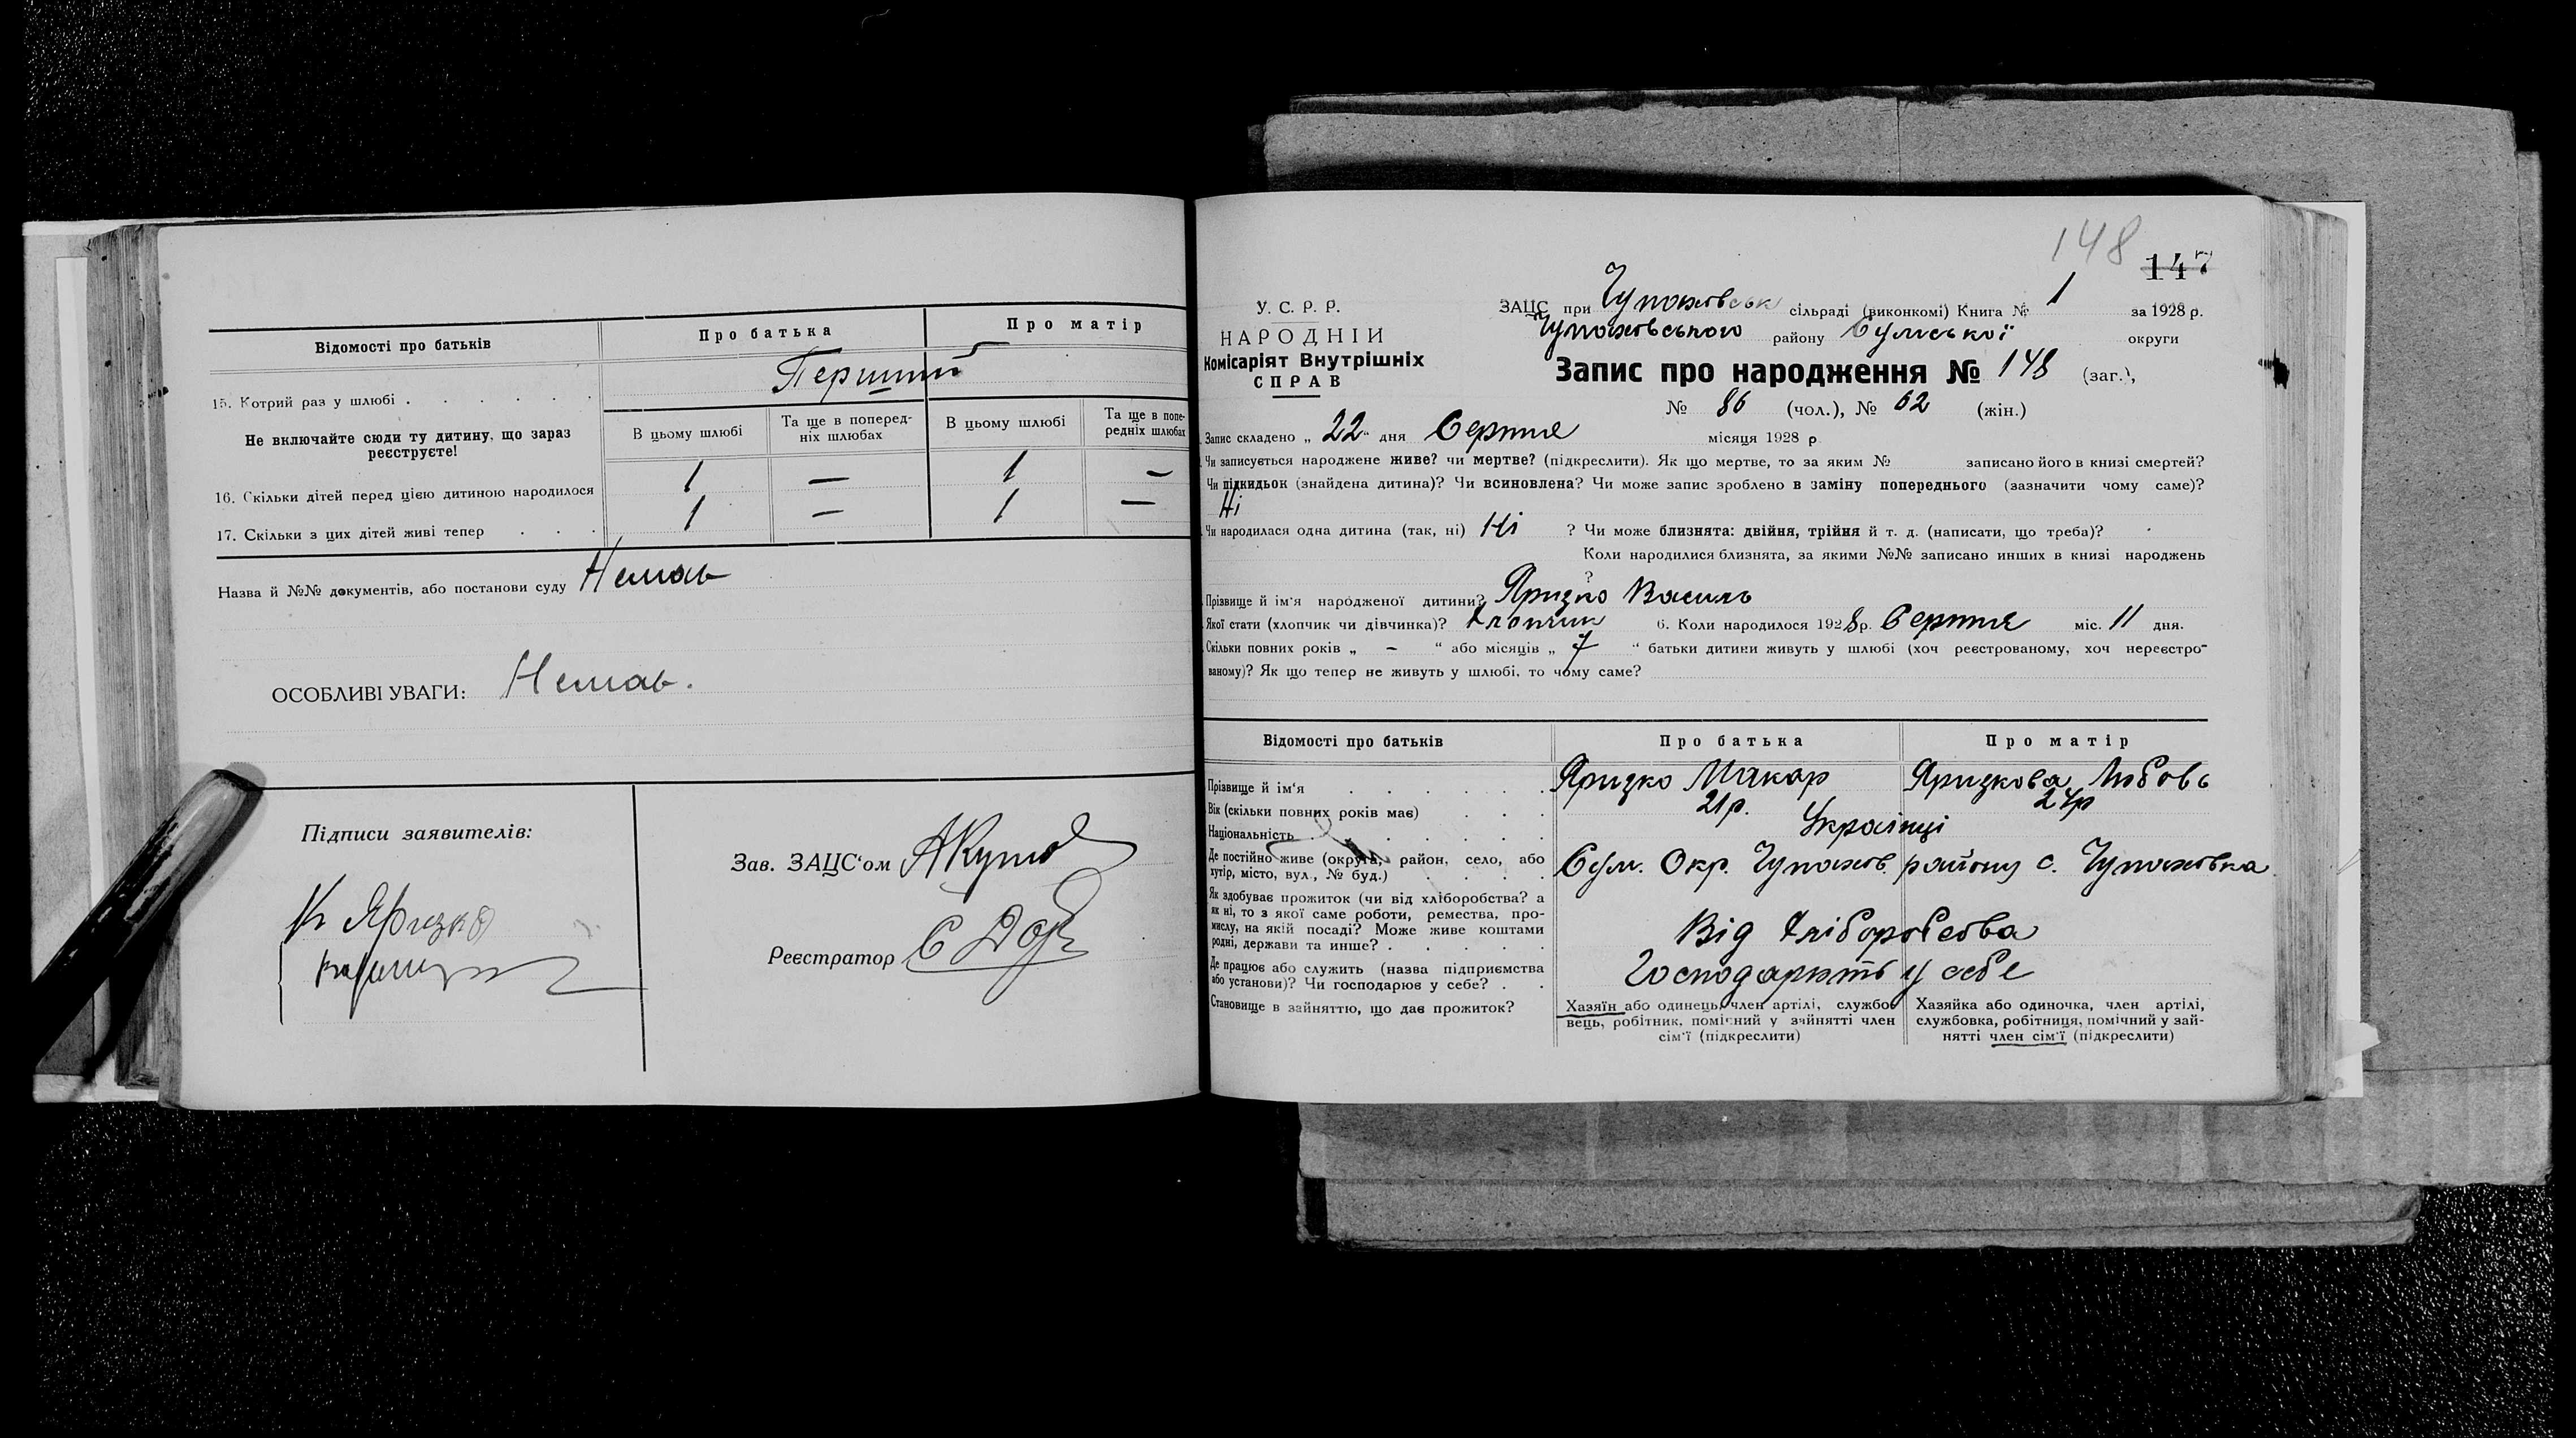 Відомості про батьків
Про батька
Про матір
15. Котрий раз у шлюбі
Перший
Не включайте сюди ту дитину, що зараз реєструєте!
В цьому шлюбі
Та ще в поперед-
ніх шлюбах
В цьому шлюбі
Та ще в попе-
редніх шлюбах
16. Скільки дітей перед цією дитиною народилося 1 — 1 —
17. Скільки з цих дітей живі тепер 1 — 1 —
Назва й №№ документів, або постанови суду Немає
ОСОБЛИВІ УВАГИ: Немає.
Підписи заявителів:
Зав. ЗАЦС'ом
Реєстратор
148
147
У. С. Р. Р.
НАРОДНІЙ
Комісаріят Внутрішніх
СПРАВ
ЗАЦС при Чупахівськ сільраді (виконкомі) Книга № 1 за 1928 р.
Чупахівського району Сумської округи
Запис про народження № 148 (заг.),
№ 86 (чол.), № 62 (жін.)
Запис складено „ 22 " дня Серпня місяця 1928 р
Чи записується народжене живе? чи мертве? (підкреслити). Як що мертве, то за яким № записано його в книзі смертей?
Чи підкидьок (знайдена дитина)? Чи всиновлена? Чи може запис зроблено в заміну попереднього (зазначити чому саме)?
Ні
Чи народилася одна дитина (так, ні) Ні ? Чи може близнята: двійня, трійня й т. д. (написати, що треба)?
Коли народилися близнята, за якими №№ записано инших в книзі народжень
?
Прізвище й ім'я народженої дитини? Яризко Василь
Якої стати (хлопчик чи дівчинка)? Хлопчик 6. Коли народилося 1928 р. Серпня міс. 11 дня.
Скільки повних років „ - " або місяців „ 7 " батьки дитини живуть у шлюбі (хоч реєстрованому, хоч нереєстро-
ваному)? Як що тепер не живуть у шлюбі, то чому саме?
Відомості про батьків
Про батька
Про матір
Прізвище й ім'я Яризко Макар Яризкова Любовь
Вік (скільки повних років має) 21р. 24р
Національність Українці
Де постійно живе (округа, район, село, або
хутір, місто, вул., № буд.) Сум. Окр. Чупахів. району с. Чупахівка
Як здобуває прожиток (чи від хліборобства? а
як ні, то з якої саме роботи, ремества, про-
мислу, на якій посаді? Може живе коштами
родні, держави та инше?
Від Хліборобства
Де працює або служить (назва підприємства
або установи)? Чи господарює у себе?
Господарюють у себе
Становище в зайняттю, що дає прожиток?
Хазяїн або одинець, член артілі, службо-
вець, робітник, помічний у зайнятті член
сім'ї (підкреслити)
Хазяйка або одиночка, член артілі,
службовка, робітниця, помічний у зай-
нятті член сім'ї (підкреслити)